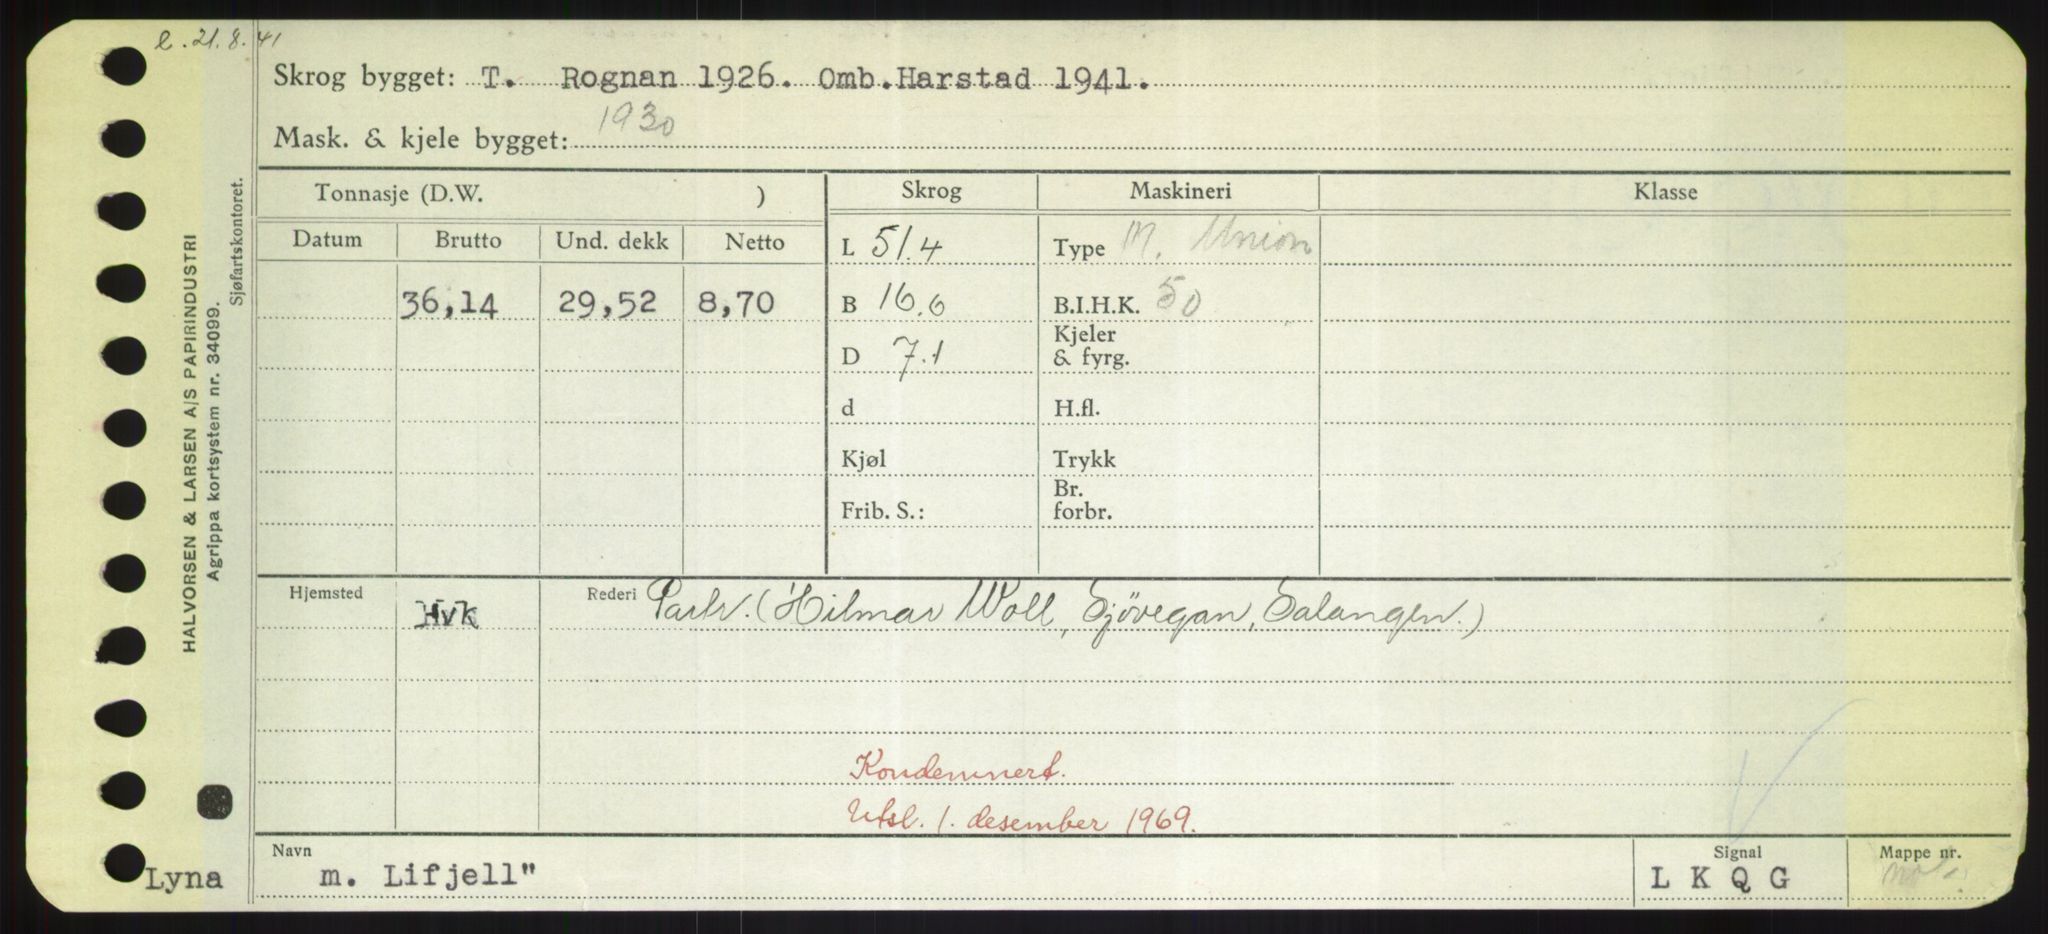 21.8.41
Skrog bygget: T. Rognan 1926. Omb.Harstad 1941.
Mask. & kjele bygget: 1930
Tonnasje (D.W. ) Skrog Maskineri Klasse
Datum Brutto Und. dekk Netto L 51.4 Type M. Union
36,14 29,52 8,70 B 16.6 B.I.H.K. 50
D 7.1 Kjeler & fyrg.
d H.fl.
Kjøl Trykk
Frib. S.: Br. forbr.
Hjemsted Hvk Rederi Partr. (Hilmar Woll, Sjövegan, Salangen.)
Kondemnert.
Utsl. 1. desember 1969.
Navn Signal Mappe nr.
Lyna m. Lifjell" L K Q G
HALVORSEN & LARSEN A/S PAPIRINDUSTRI
Agrippa kortsystem nr. 34099.
Sjøfartskontoret.